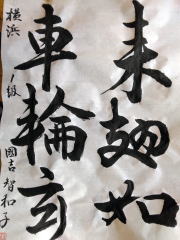 来翅如
車輪玄
横浜 1級 國吉智和子